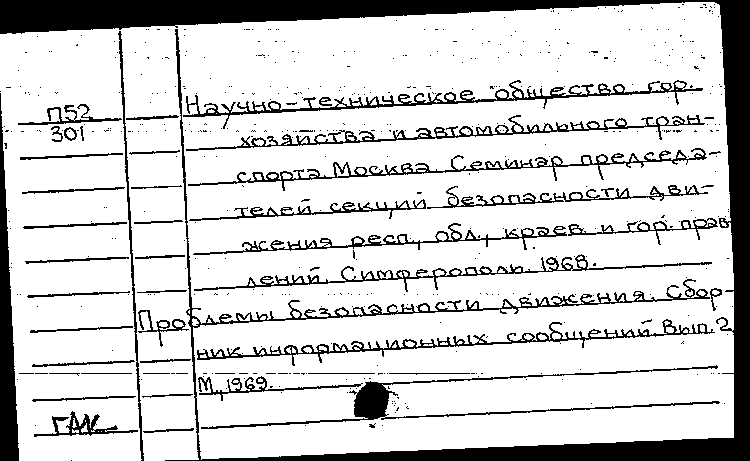 П52
301
Научно-техническое общество гор.
хозяйства и автомобильного тран-
спорта. Москва. Семинар председа-
телей секций безопасности дви-
жения респ., обл., краев. и гор. прав-
лений. Симферополь. 1968.
Проблемы безопасности движения. Сбор-
ник информационных сообщений. Вып. 2
М., 1969.
ГАК